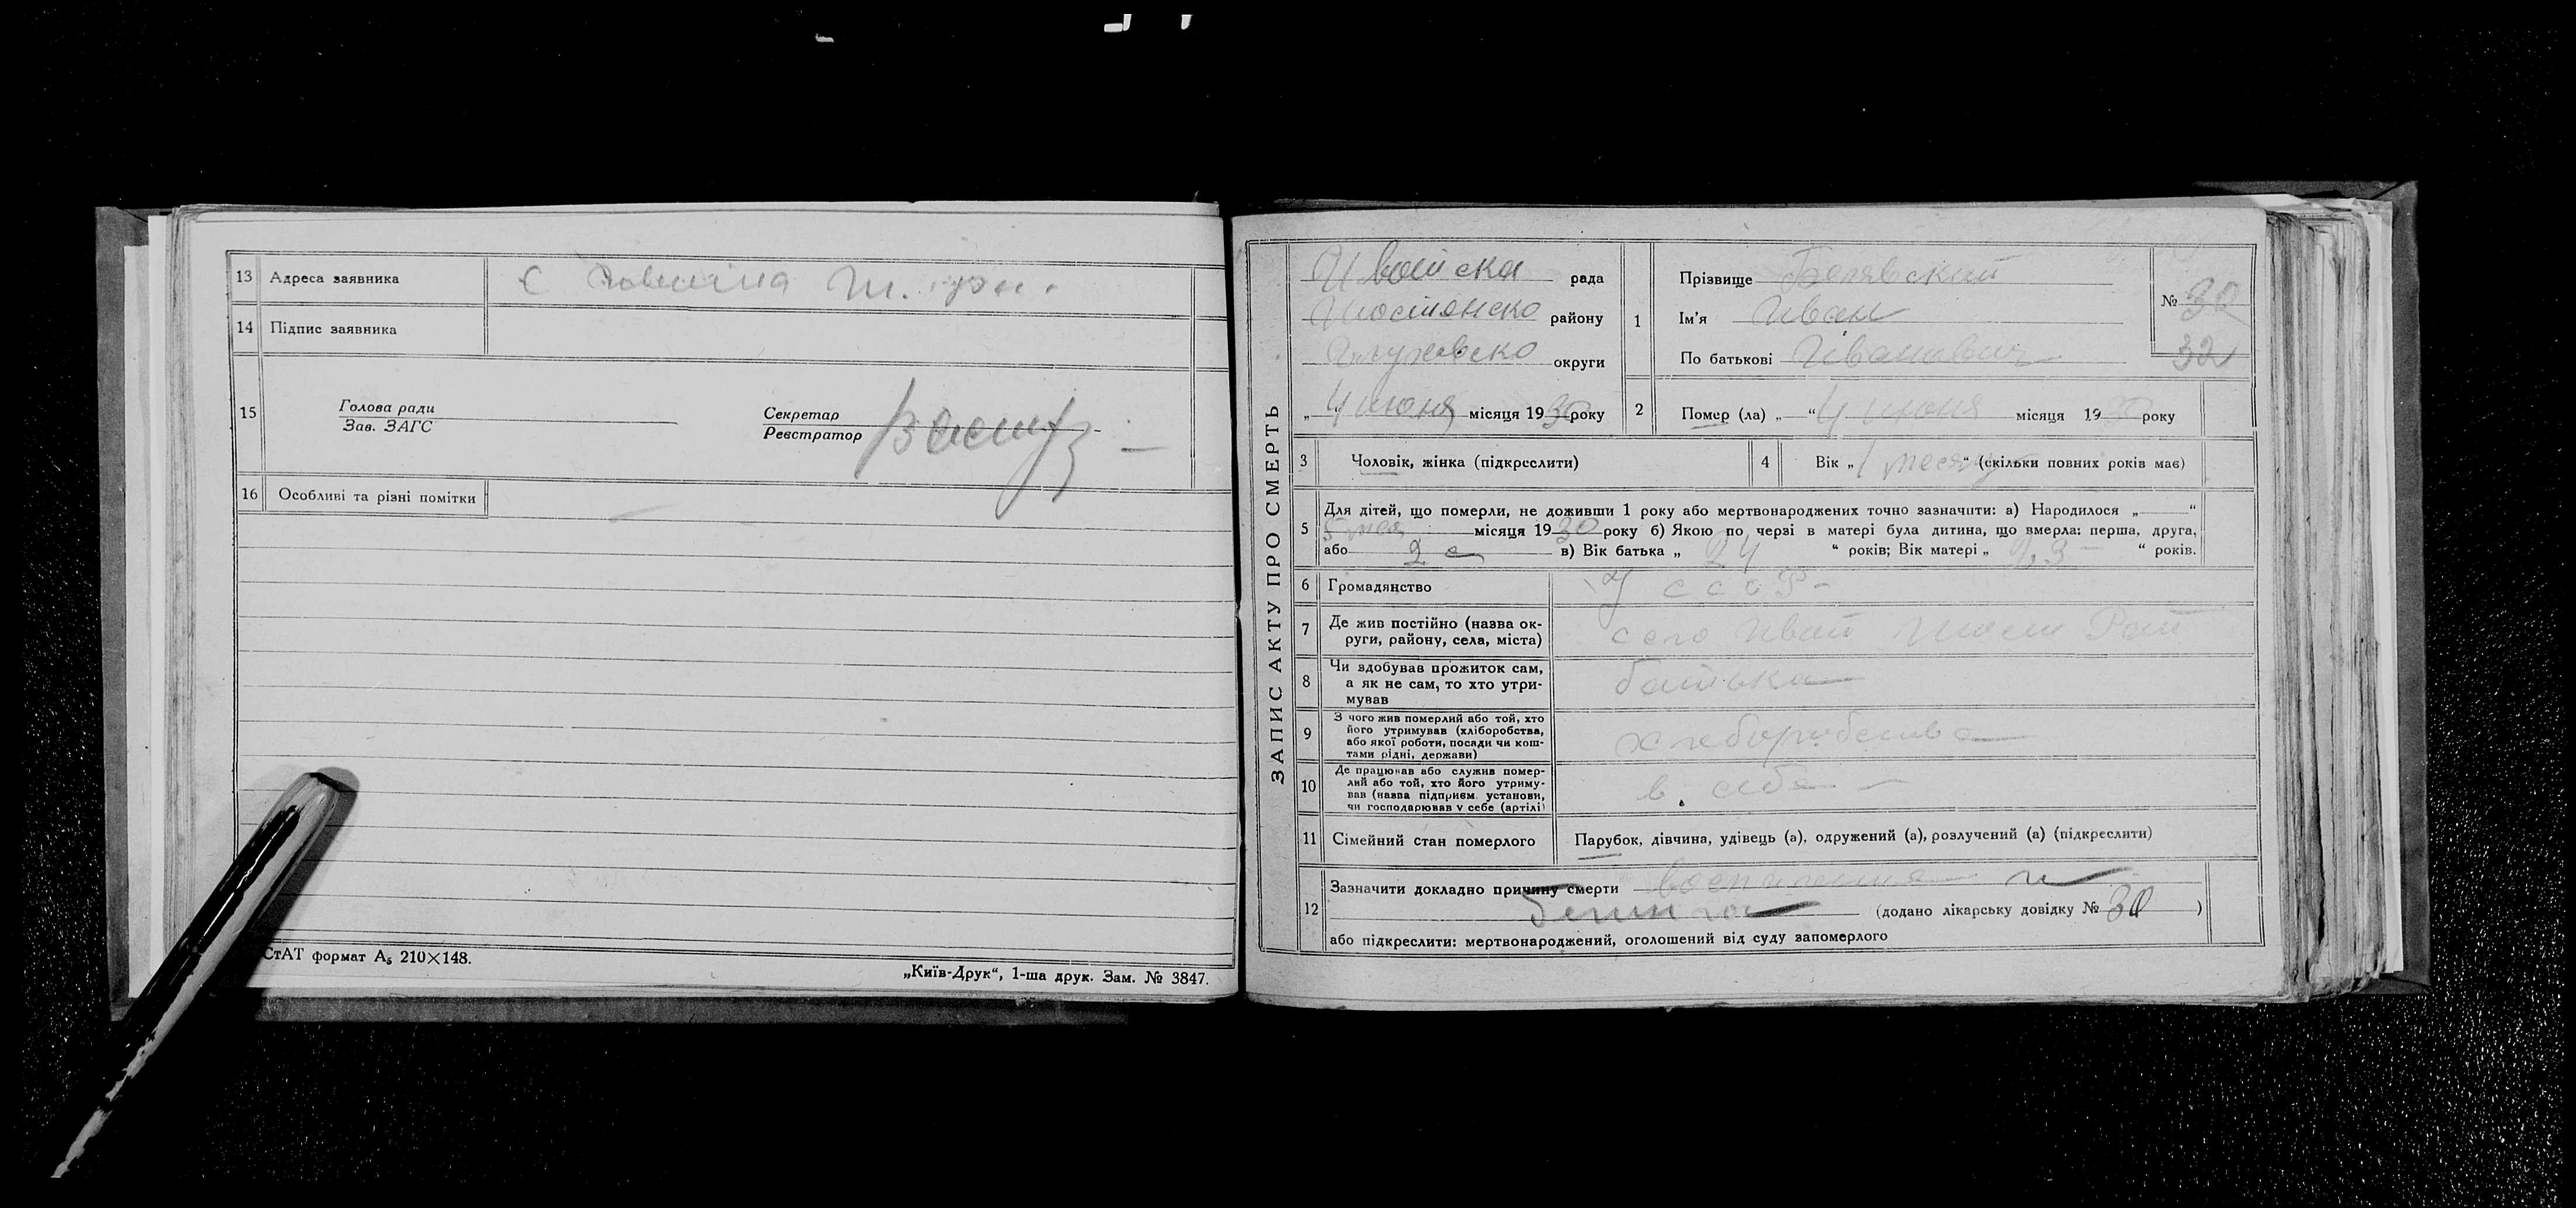 13 Адреса заявника с
14 Підпис заявника
15 Голова ради
Зав. ЗАГС
Секретар
Реєстратор
16 Особливі та різні помітки
СтАТ формат А₅ 210×148.
„Київ-Друк“, 1-ша друк. Зам. № 3847.
ЗАПИС АКТУ ПРО СМЕРТЬ
Ивотска рада
Шостенско району
Глуховско округи
„ 4 июня місяця 1930 року
1 Прізвище Белявский
Ім'я Иван
По батькові Иванович
№ 30
32
2 Помер (ла) „ “ 4 июня місяця 1930 року
3 Чоловік, жінка (підкреслити)
4 Вік „ 1 месяц “ (скільки повних років має)
5 Для дітей, що померли, не доживши 1 року або мертвонароджених точно зазначити: а) Народилося „ “
5 мая місяця 1930 року б) Якою по черзі в матері була дитина, що вмерла: перша, друга,
або 2 в) Вік батька „ 24 “ років; Вік матері „ 23 “ років.
6 Громадянство УССР
7 Де жив постійно (назва ок-
руги, району, села, міста) село Ивот Шост Рай
8 Чи здобував прожиток сам,
а як не сам, то хто утри-
мував батька
9 З чого жив померлий або той, хто
його утримував (хліборобства,
або якої роботи, посади чи кош-
тами рідні, держави) хлеборобства
10 Де працював або служив помер-
лий або той, хто його утриму-
вав (назва підприєм. установи,
чи господарював у себе (артілі) в себе
11 Сімейний стан померлого Парубок, дівчина, удівець (а), одружений (а), розлучений (а) (підкреслити)
12 Зазначити докладно причину смерти
(додано лікарську довідку № 30 )
або підкреслити: мертвонароджений, оголошений від суду запомерлого